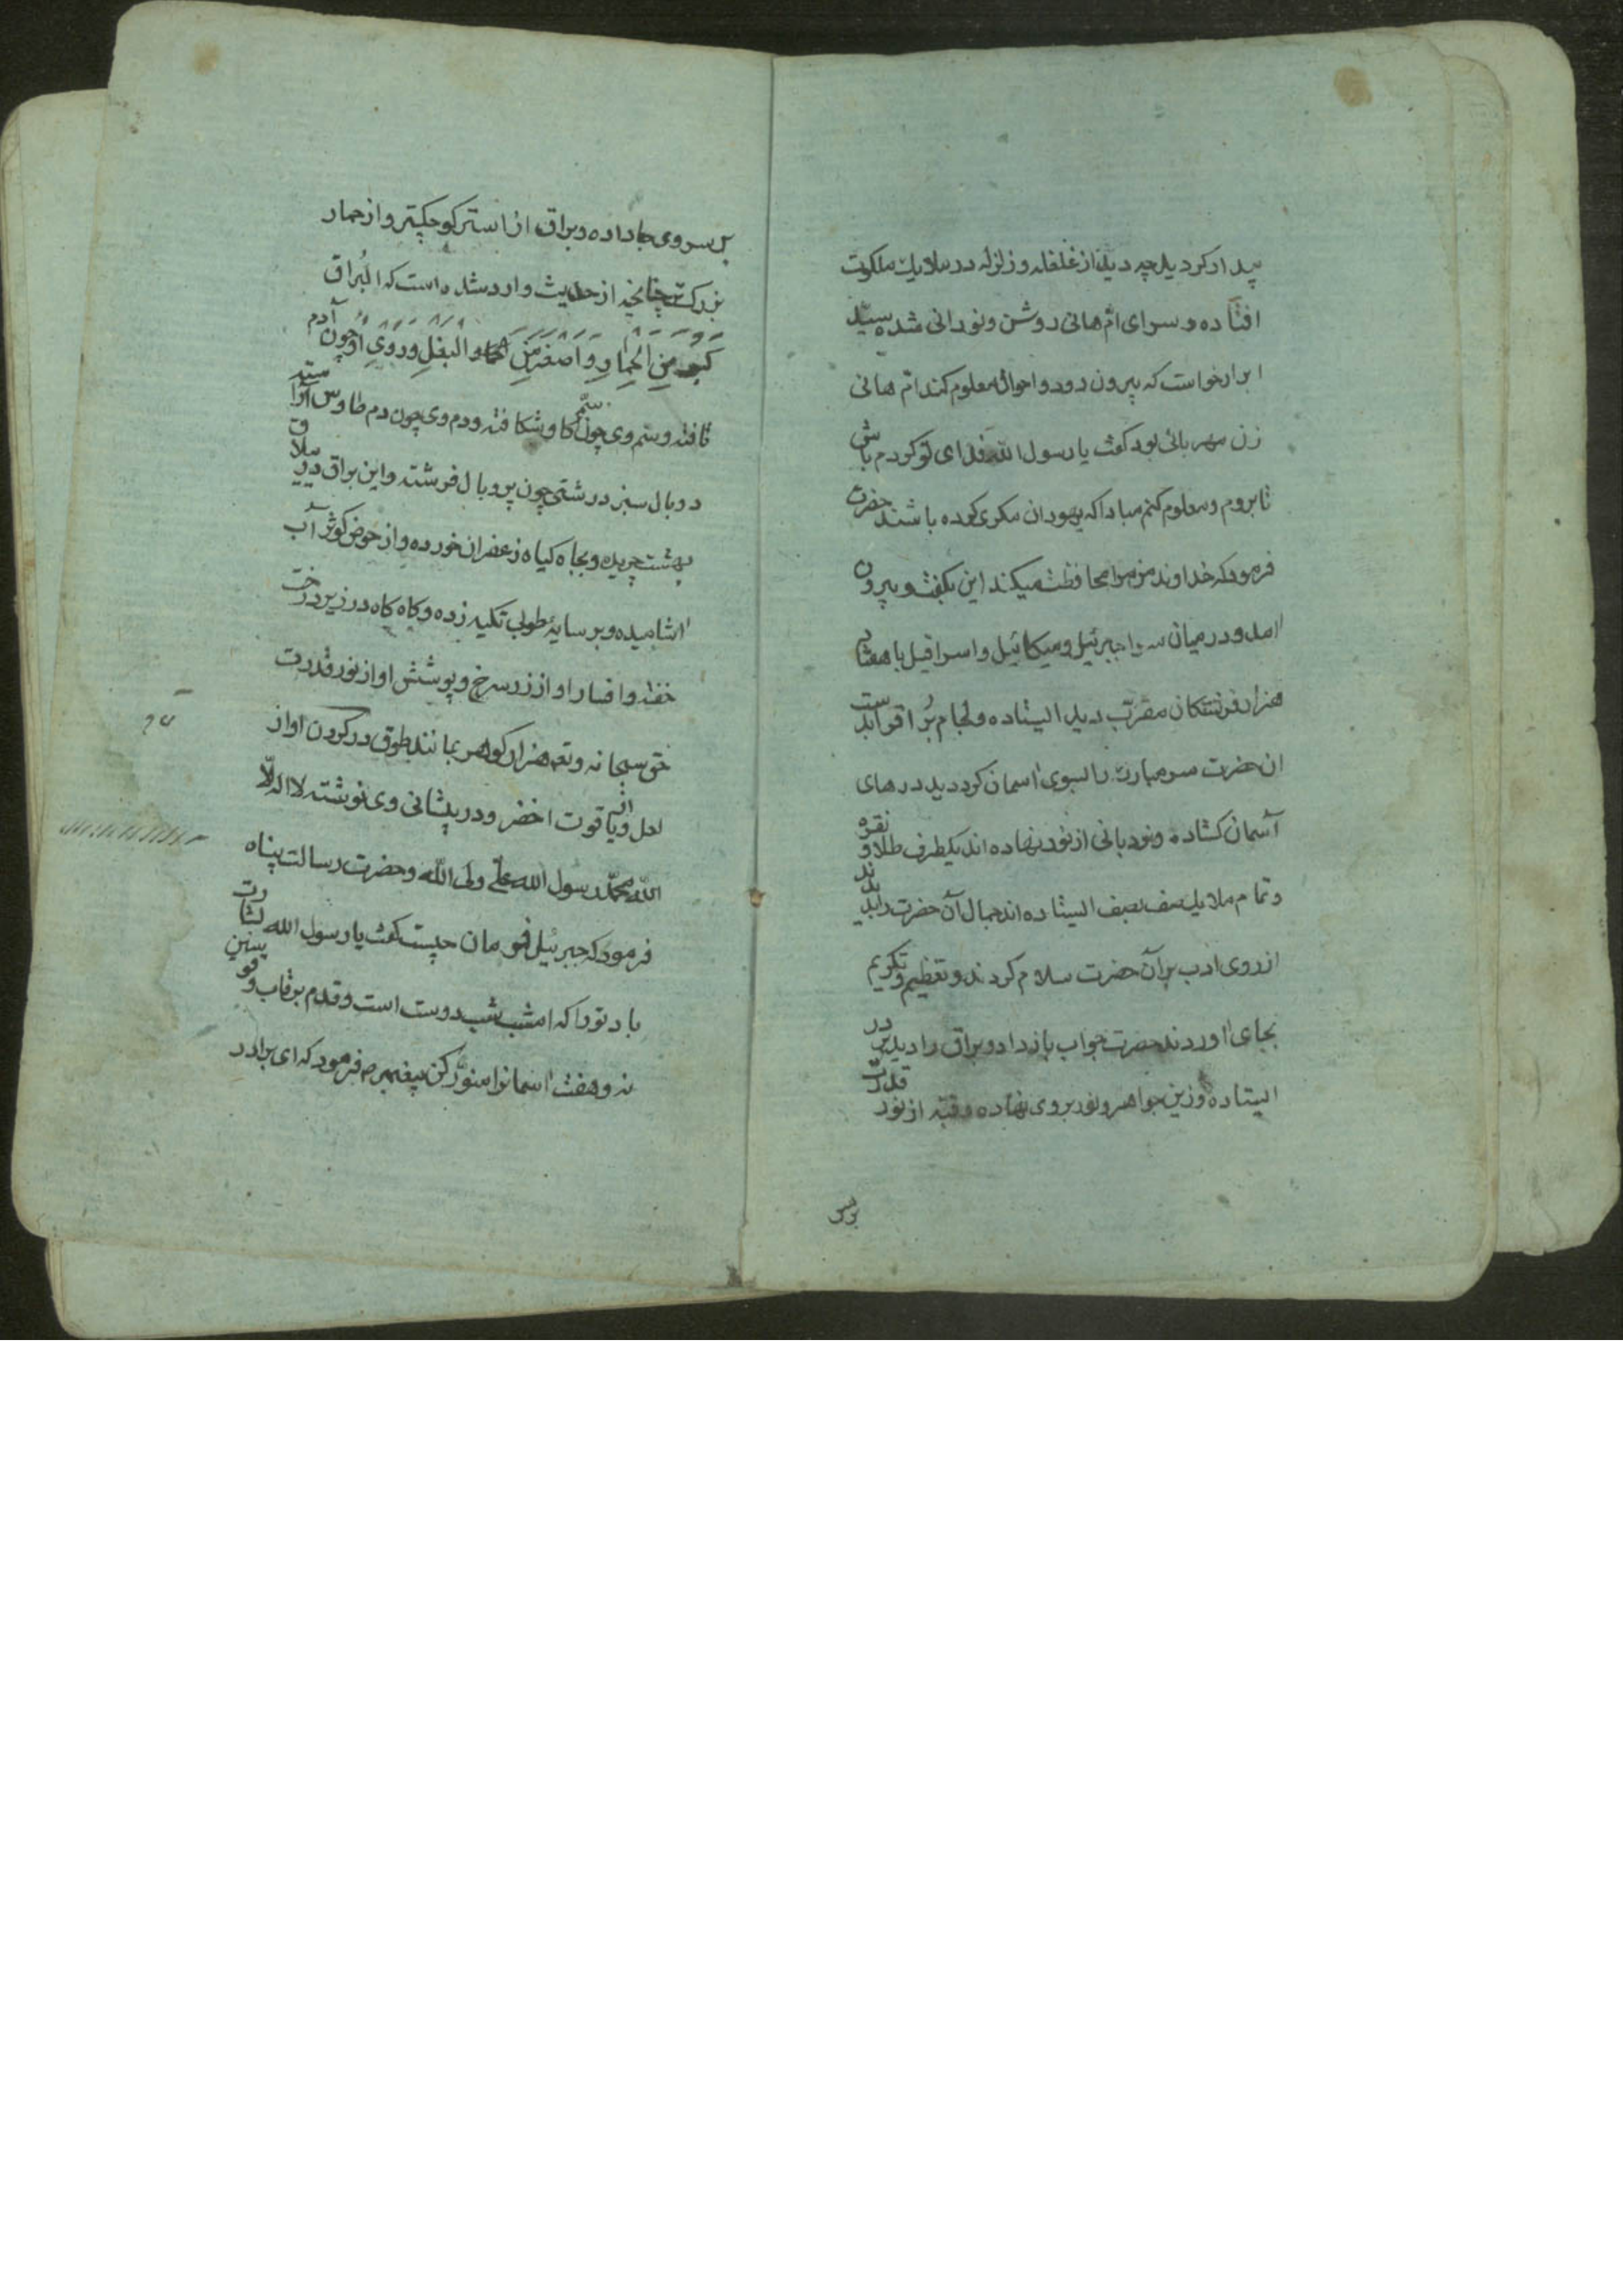 بیدار کرد یا چه دید از غلغله و زلزله در ملایک ملکوت
افتاده و سرای ام هانی روشن و نورانی شده سیّد
ابرار خواست که بیرون رود و احوال معلوم کند ام هانی
زن مهربانی بود گفت یا رسول الله فدای تو کردم باش
تا بروم و معلوم کنم مبادا که یهودان مکری کرده باشند حضرت
فرمود که خداوند من مرا محافظت میکند این بگفت و بیرون
امد و در میان سرا جبرئیل و میکائیل و اسرافیل با هفتاد
هزار فرشتکان مقرّب دید ایستاده و لجام بُراق و ابدست
ان حضرت سر مبارک را بسوی اسمان کرد دید درهای
آسمان کشاده و نودبانی از نور نهاده اند یکطرف طلا و نقره
و تمام ملایک صف بصف ایستاده اند جمال آن حضرت را بدیدند
از روی ادب بر آن حضرت سلام کردند و تعظیم و تکریم
بجای اوردند حضرت جواب باز داد و براق را دید بر در
ایستاده و زین جواهر و نور بر وی نهاده و قبّه از نور قدرت
بر سر
بر سر وی جا داده و براق از استر کوچکتر و از حمار
بزرکتر چنانچه از حدیث وارد شده است که البُراق
کَبُر مِنَ الْحِمارِ وَ اَصْغَر مِنَ البَغْلِ وَ رَویِ او چون آدم
تافته و سم وی چون سمّ کاو شکافته و دم وی چون دم طاوس آراسته
دو بال سبز درشتی چون پر و بال فرشته و این براق در ملاق
بهشت چریده و بجاه کیاه زعفران خورده و از حوض کوثر آب
اشامیده و بر سایۀ طوبی تکیه زده و کاه کاه در زیر درخت
خفته و افسار او از زر سرخ و پوشش او از نور قدرت
حق سبحانه و تعه هزار کوهر بمانند طوق در کردن او از
لعل و از یاقوت اخضر و در پیشانی وی نوشته لا اله الّا
الله محمّد رسول الله علی ولی الله و حضرت رسالت پناه
فرمود که جبرئیل فرمان چیست کفت یا رسول الله بشارت
باد تو را که امشب شب دوست است و قدم بر قاب قوسین
نه و هفت اسمانرا منوّر کن پیغمبر ص فرمود که ای برادر